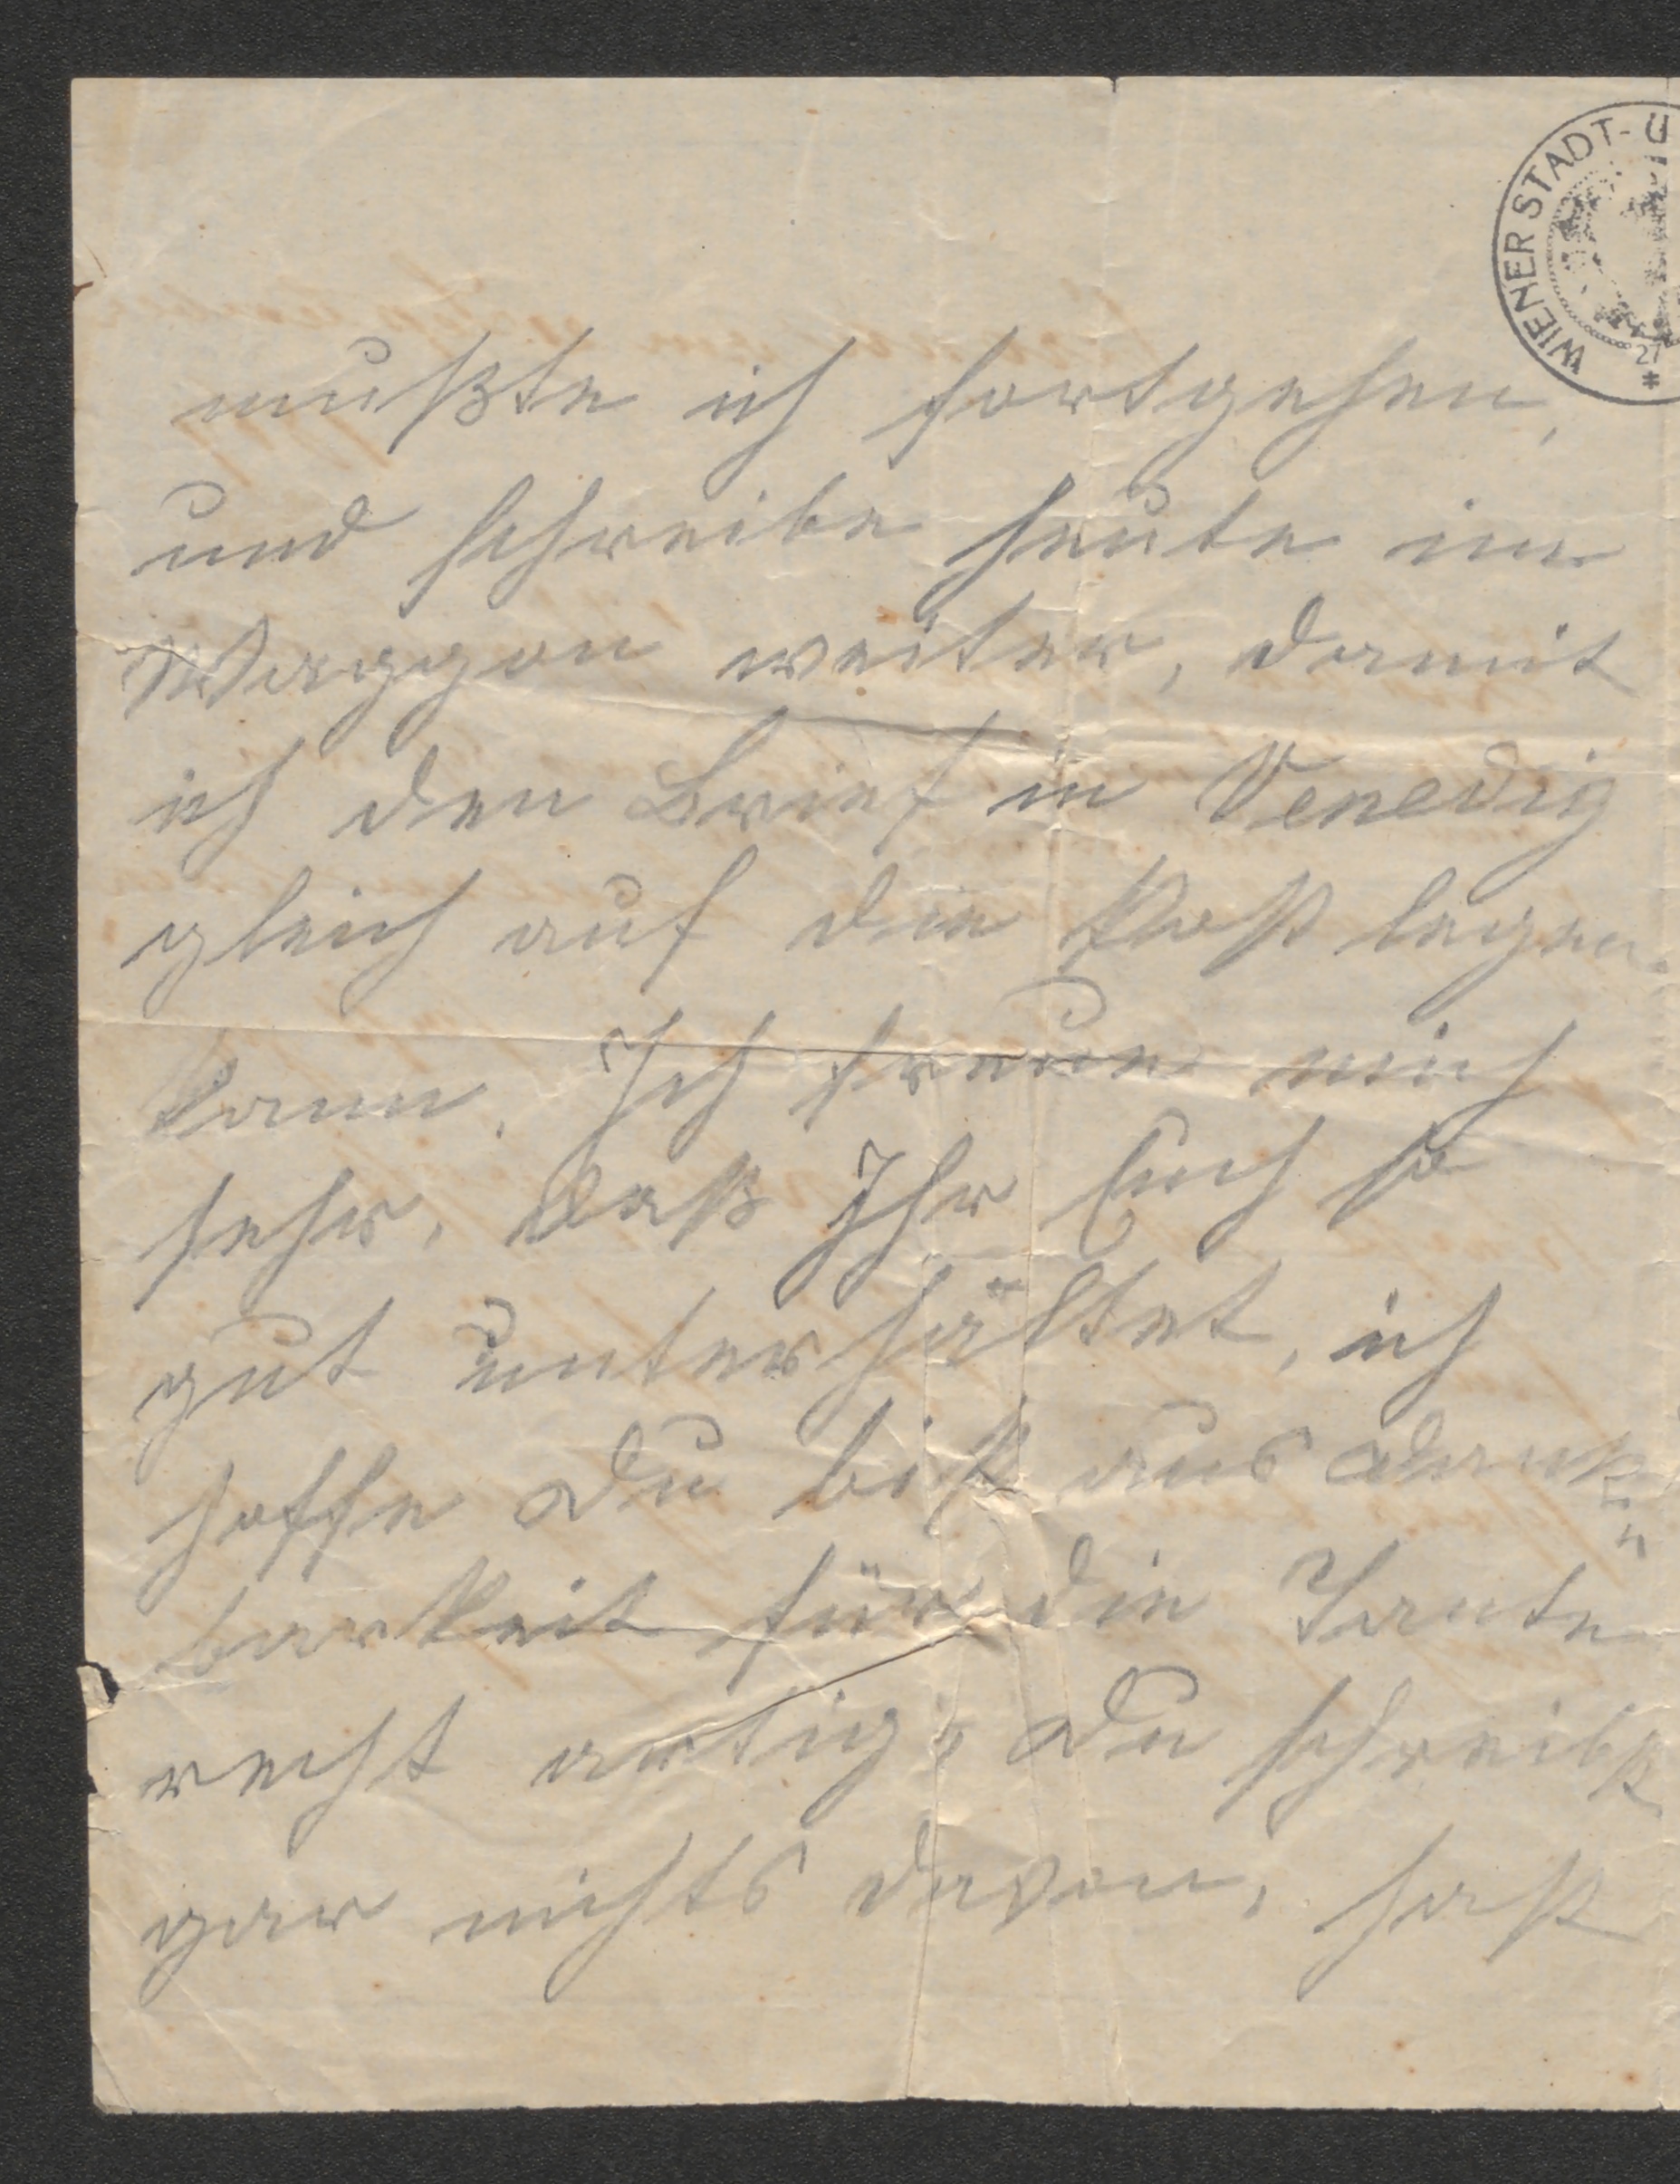 WIENER STADT- U
27
*
mußte ich fortgehen,
und schreibe heute im
Waggon weiter, damit
ich den Brief in Venedig
gleich auf die Post legen
kann. Ich freue mich
sehr, daß Ihr Euch so
gut unterhältet, ich
hoffe Du bist aus Dank„
barkeit für die Tante
recht artig; Du schreibst
gar nichts davon, hast